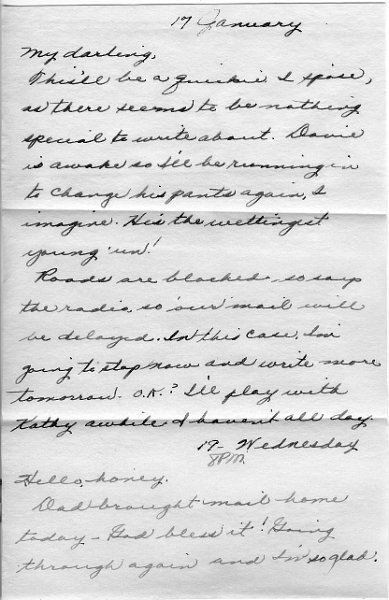 17 January
My darling,
This'll be a quickie I s'pose,
as there seems to be nothing
special to write about. Davie
is awake so I'll be running in
to change his pants again, I
imagine. He's the wettingest
young 'un!
Roads are blocked, so says
the radio, so our mail will
be delayed. In this case, I'm
going to stop now and write more
tomorrow. O.K.? I'll play with
Kathy awhile. I haven't all day.
19- Wednesday
8PM.
Hello, honey.
Dad brought mail home
today - God bless it! Going
through again and I'm so glad.